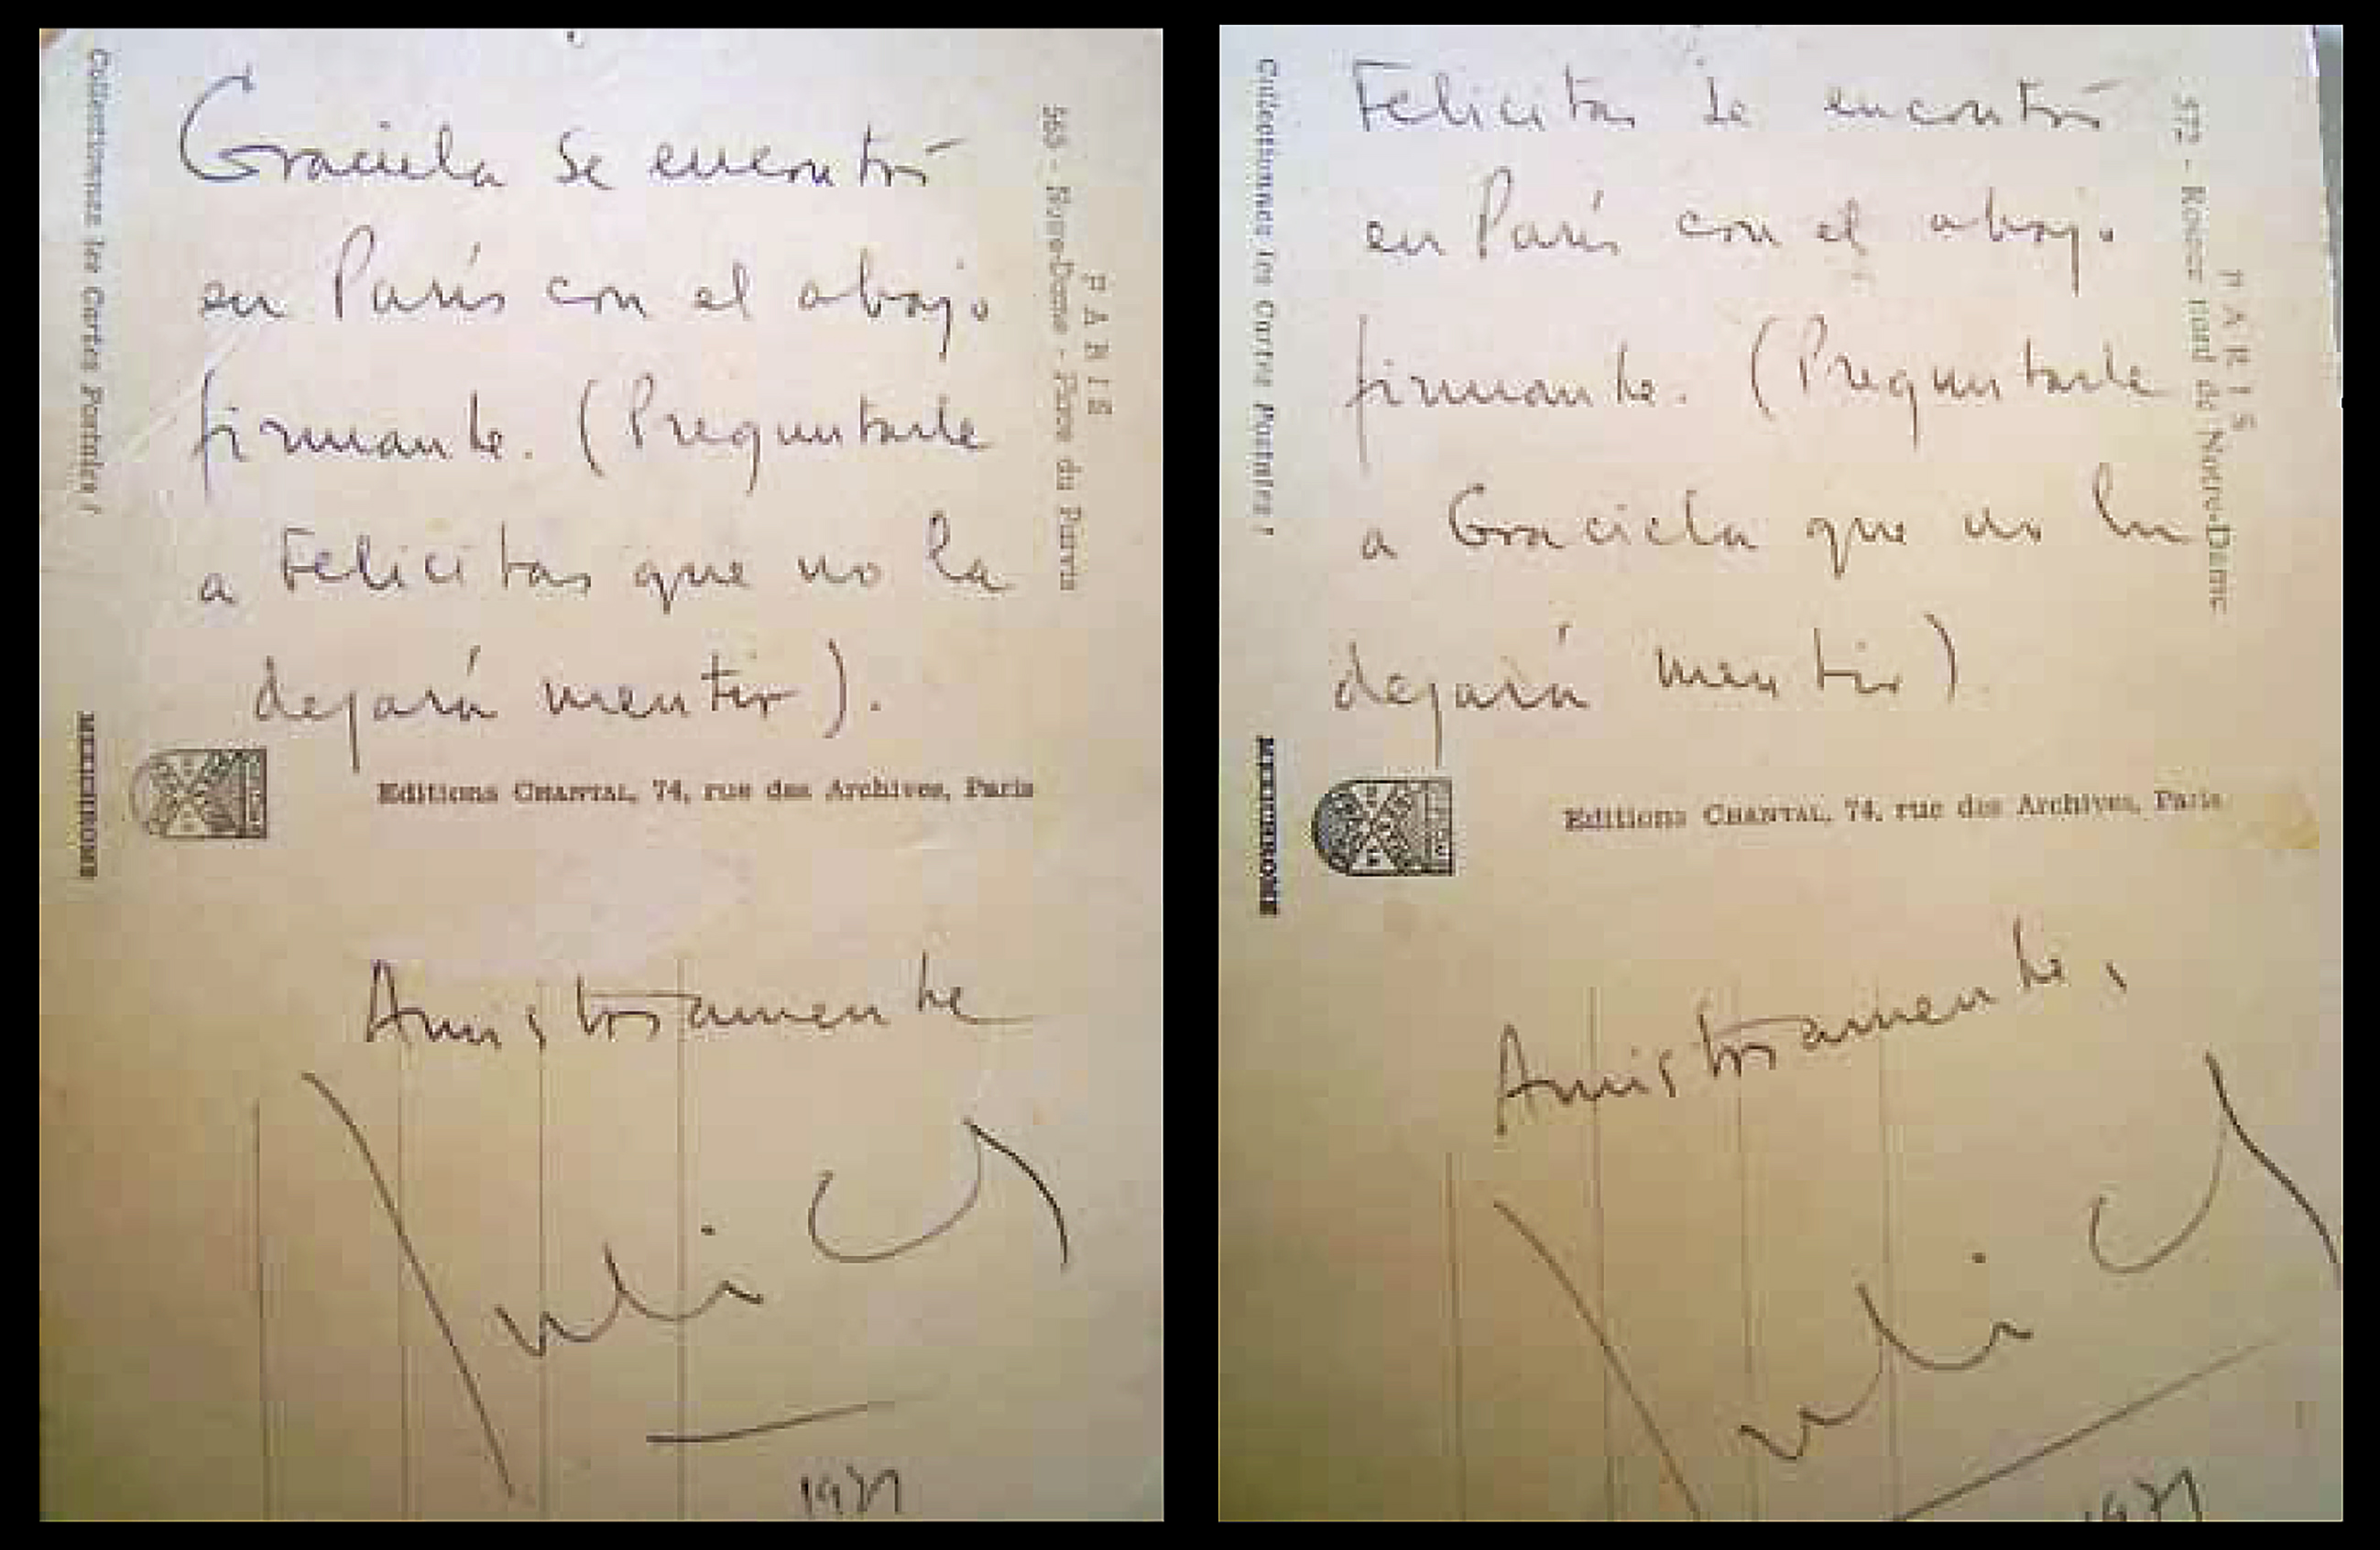 Graciela se encontró
en París con el abajo
firmante. (Preguntarle
a Felicitas que no la
dejará mentir).
Editions CHANTAL, 74, rue des Archives, Paris
Amistosamente
Julio
1971
Collectionnez les Cartes Postales !
MEXICHROME
PARIS
- Notre-Dame - Place du Parvis
Felicitas se encontró
en París con el abajo
firmante. (Preguntarle
a Graciela que no la
dejará mentir)
Editions CHANTAL, 74, rue des Archives, Paris
Amistosamente,
Julio
1971
Collectionnez les Cartes Postales !
MEXICHROME
PARIS
572 - Rosace nord de Notre-Dame